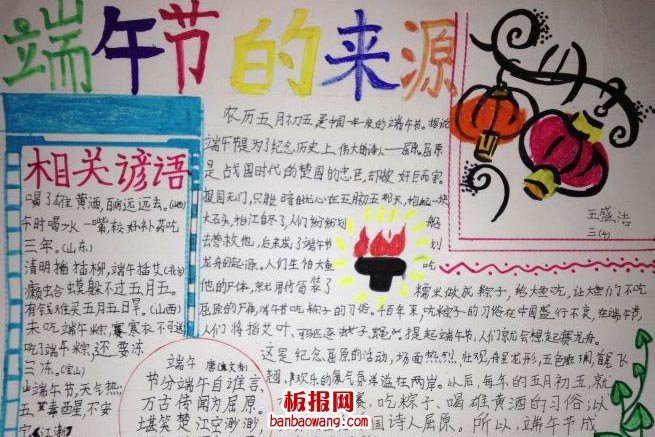 端午节的来源
相关谚语
喝了雄黄酒,百病远远去。(山西)
午时喝水一嘴,较好补药吃
三年。(山东)
清明插柳,端午插艾(南京)
癞蛤蟆躲不过五月五。
有钱难买五月五日旱。(山西)
未吃端午粽,寒衣不可送
吃了端午粽,还要冻
三冻。(宝山)
端午节,天气热;
五毒醒,不安
端午
节分端午自谁言,
万古传闻为屈原。
堪笑楚江空渺渺,
农历五月初五是中国一年一度的端午节。据说
端午节是为了纪念历史上伟大的诗人——屈原。屈原
是战国时代的楚国的忠臣,却被奸臣所害。
报国无门,只能暗
在五月初五那天,抱起一块
大石头,投江自尽了。人们纷纷划
船
去营救他,后来成了端午节
划
龙舟的起源。人们生怕大鱼
吃
他的尸体,
竹筒装了
糯米做成粽子,给大鱼吃,让大鱼们不吃
屈原的尸体,端午节吃粽子的习俗。千百年来,吃粽子的习俗在中国盛行不衰,在端午节,
人们将插艾叶,
提起端午节,人们就会想起赛龙舟。
这是纪念屈原的活动,场面热烈、壮观,舟呈龙形,五色斑斓,首尾飞
翘,
欢乐的
洋溢在两岸。以后,每年的五月初五,就
赛、吃粽子、喝雄黄酒的习俗;以
国诗人屈原。所以,端午节成
王盛浩
三
板报网
banbaowang.com